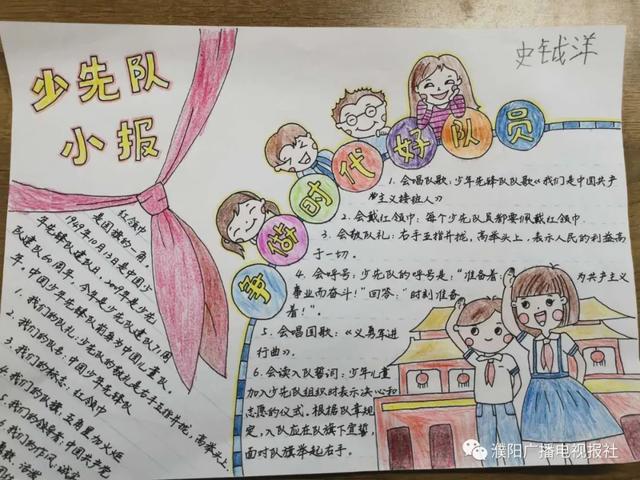 少先队
小报
史钺洋
争做时代好队员
红领巾
是国旗的一角
1949年10月13日是中国少
年先锋队建队日,2009年是少先
队建队60周年。今年是少先队建队70周
年。中国少年先锋队前身为中国儿童队。
1、我们的队礼:少先队的敬礼是右手五指并拢,高举头上.
2、我们的队名:中国少年先锋队
3、我们的标志:红领巾
4、我们的队旗:五角星加火炬
5、我们的领导者:中国共产党
6、我们的作风:诚实
勇敢 活泼
团结
1、会唱队歌:少年先锋队队歌《我们是中国共产
主义接班人》
2、会戴红领巾:每个少先队员都要佩戴红领巾
3、会敬队礼:右手五指并拢,高举头上,表示人民的利益高
于一切.
4、会呼号:少先队的呼号是:“准备着:为共产主义
事业而奋斗!”回答:“时刻准备
着!”。
5、会唱国歌:《义勇军进
行曲》.
6、会读入队誓词:少年儿童
加入少先队组织时表示决心和
志愿的仪式。根据队章规
定,入队应在队旗下宣誓,
面对队旗举起右手。
濮阳广播电视报社